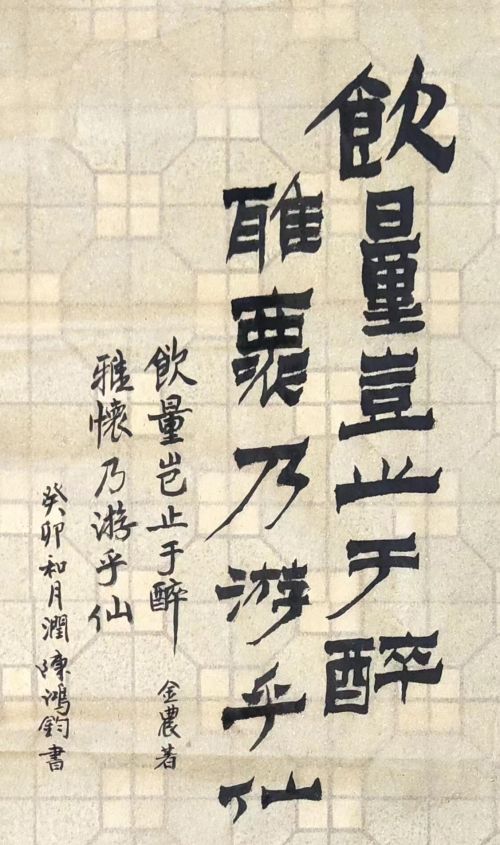 飲量豈止于醉
雅裏乃游乎仙
飲量岂止于醉
雅懷乃游乎仙
金農著
癸卯和月潤陳鴻鈞書